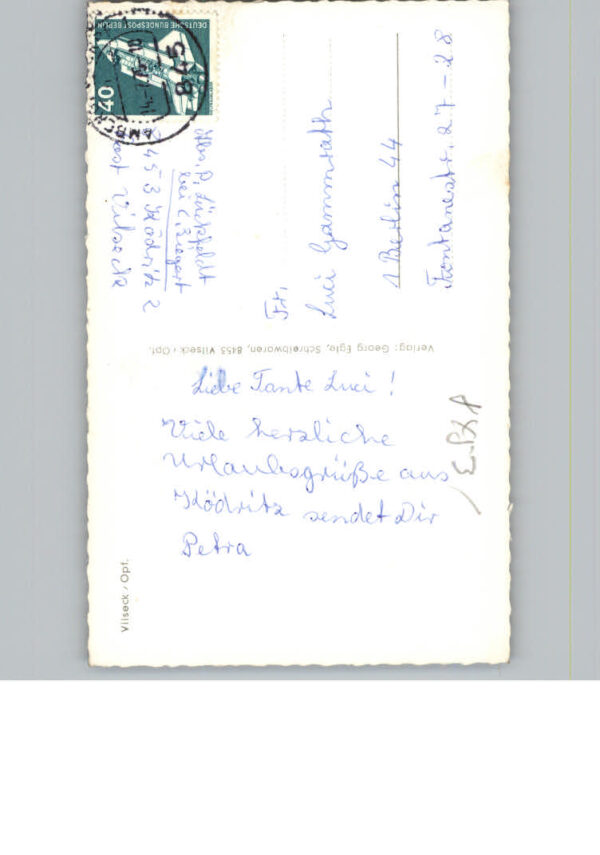 Liebe Tante Luci!
Viele herzliche
Urlaubsgrüße aus
Ködritz sendet Dir
Petra
Vilseck/Opf.
Verlag: Georg Egle, Schreibwaren, 8453 Vilseck/Opf.
DEUTSCHE BUNDESPOST BERLIN
40
845
AMBERG
Abs. P. 
bei C. Ziegert
8453 Ködritz 2
Post Vilseck
Fr.
Luci Gammrath
1 Berlin 44
Fontanestr. 27-28